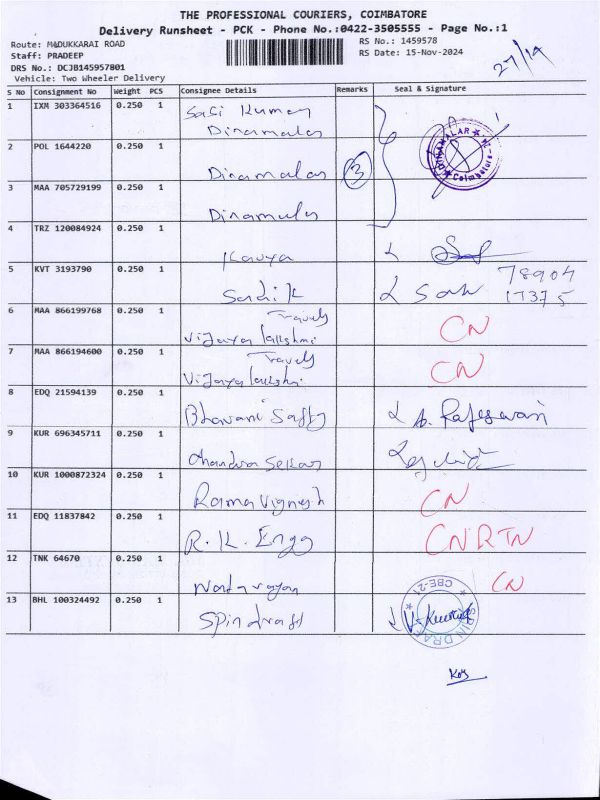 THE PROFESSIONAL COURIERS, COIMBATORE
Delivery Runsheet - PCK - Phone No.:0422-3505555 - Page No.:1
Route: MADUKKARAI ROAD
RS No.: 1459578
Staff: PRADEEP
RS Date: 15-Nov-2024
27/14
DRS No.: DCJB145957801
Vehicle: Two Wheeler Delivery
S No Consignment No Weight PCS Consignee Details Remarks Seal & Signature
1 IXM 303364516 0.250 1 Sasi Kumar
Dinamalar
2 POL 1644220 0.250 1 Dinamalar 3
DINAMALAR
Coimbatore
3 MAA 705729199 0.250 1 Dinamalar
4 TRZ 120084924 0.250 1 Kavya
5 KVT 3193790 0.250 1 Sadik
78904
17375
6 MAA 866199768 0.250 1 Travels
Vijaya lakshmi CN
7 MAA 866194600 0.250 1 Travels
Vijaya lakshmi CN
8 EDQ 21594139 0.250 1 Bhavani A. Rajeswari
9 KUR 696345711 0.250 1 Chandra Sekar
10 KUR 1000872324 0.250 1 Rama Vignesh CN
11 EDQ 11837842 0.250 1 R. K. Engg CN RTN
12 TNK 64670 0.250 1 Natarajan CN
13 BHL 100324492 0.250 1 Spindraft
CBE-21
SPIN DRAFT